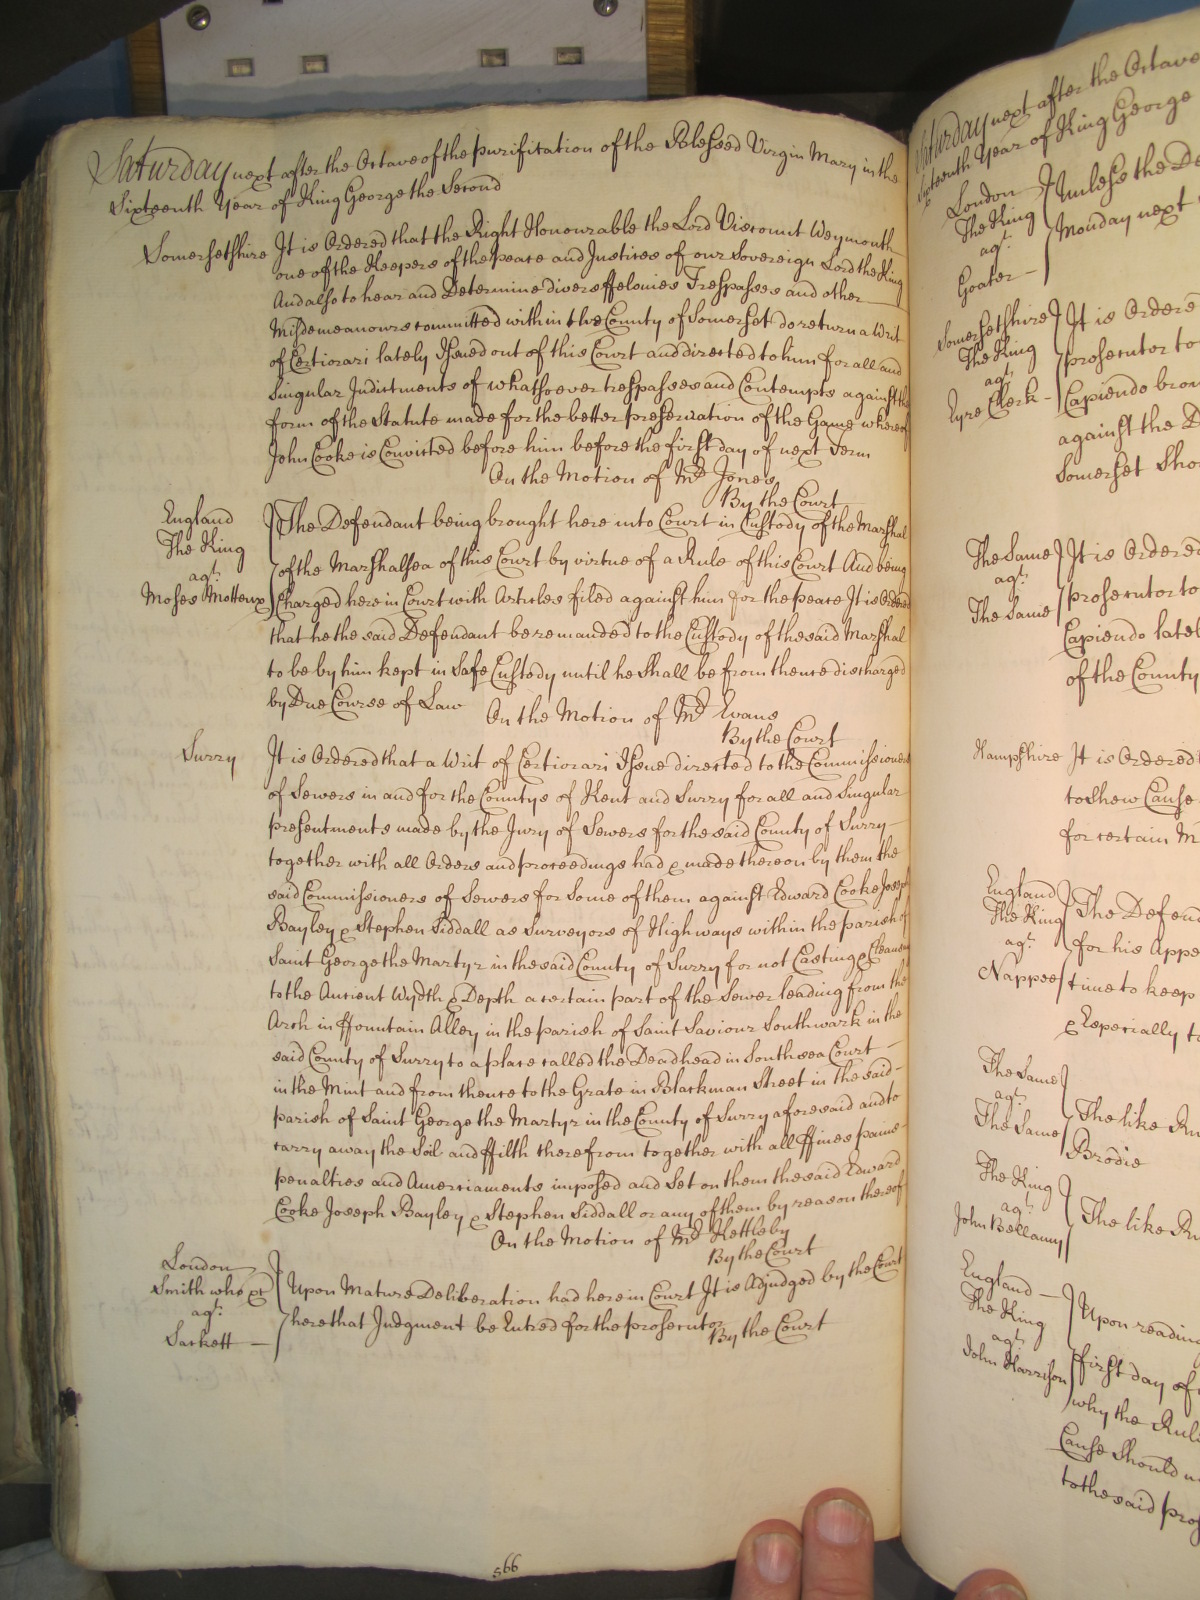 Saturday next after the Octave of the purification of the Blessed Virgin Mary in the
Sixteenth Year of King George the Second
Somersetshire It is Ordered that the Right Honourable the Lord Viscount Weymouth
one of the Keepers of the peace and Justices of our Sovereign Lord the King
And also to hear and Determine divers ffelonies Trespasses and other
Misdemeanours committed within the County of Somerset do return a Writ
of Certiorari lately Issued out of this Court and directed to him for all and
Singular Indictments of whatsoever trespasses and Contempts against the
form of the Statute made for the better preservation of the Game whereof
John Cooke is Convicted before him before the first day of next Term
On the Motion of Mr. Jones
By the Court
England
The King
agt.
Moses Motteux
The Defendant being brought here into Court in Custody of the Marshal
of the Marshalsea of this Court by virtue of a Rule of this Court And being
Charged here in Court with Articles filed against him for the peace It is Ordered
that he the said Defendant be remanded to the Custody of the said Marshal
to be by him kept in Safe Custody until he Shall be from thence discharged
by Due Course of Law
On the Motion of Mr. Evans
By the Court
Surry It is Ordered that a Writ of Certiorari Issue directed to the Commissioners
of Sewers in and for the Countys of Kent and Surry for all and Singular
presentments made by the Jury of Sewers for the said County of Surry
together with all Orders and proceedings had & made thereon by them the
said Commissioners of Sewers for Some of them against Edward Cooke Joseph
Bayley & Stephen Siddall as Surveyors of Highways within the parish of
Saint George the Martyr in the said County of Surry for not Casting & Cleansing
to the Ancient Wydth & Depth a certain part of the Sewer leading from the
Arch in ffountain Alley in the parish of Saint Saviour Southwark in the
said County of Surry to a place called the Deadhead in Southsea Court
in the Mint and from thence to the Grate in Blackman Street in the said
parish of Saint George the Martyr in the County of Surry aforesaid and to
carry away the Soil and ffilth therefrom together with all ffines pains
penalties and Amerciaments imposed and Set on them the said Edward
Cooke Joseph Bayley & Stephen Siddall or any of them by reason thereof
On the Motion of Mr. Kettleby
By the Court
London
Smith who &c
agt.
Sackett
Upon Mature Deliberation had here in Court It is Adjudged by the Court
here that Judgment be Entred for the prosecutor
By the Court
566
Saturday next after the Octave
Sixteenth Year of King George
London
The King
agt.
Goater
Unless the De
Monday next
Somersetshire
The King
agt.
Eyre Clerk
It is Ordere
prosecutor to
Capiendo brou
against the D
Somerset Sho
The Same
agt.
The Same
It is Ordered
prosecutor to
Capiendo latel
of the County
Hampshire It is Ordered
to Shew Cause
for certain M
England
The King
agt.
Nappee
The Defend
for his Appe
time to keep
& Especially to
The Same
agt.
The Same
The like Ru
Brodie
The King
agt.
John Bellamy
The like Ru
England
The King
agt.
John Harrison
Upon reading
first day of
why the Rule
Cause Should
to the said pros